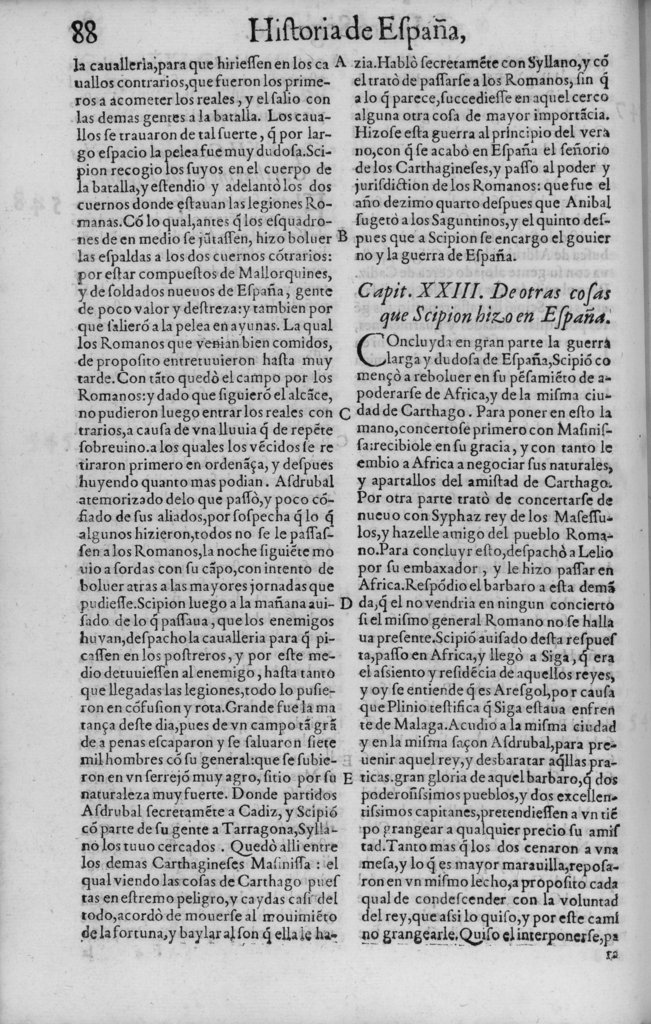 88
Historia de España,
la caualleria, para que hiriessen en los ca
uallos contrarios, que fueron los prime-
ros a acometer los reales, y el salio con
las demas gentes a la batalla. Los caua-
llos se trauaron de tal suerte, q̃ por lar-
go espacio la pelea fue muy dudosa. Sci-
pion recogio los suyos en el cuerpo de
la batalla, y estendio y adelantò los dos
cuernos donde estauan las legiones Ro-
manas. Cõ lo qual, antes q̃ los esquadro-
nes de en medio se jũtassen, hizo boluer
las espaldas a los dos cuernos cõtrarios:
por estar compuestos de Mallorquines,
y de soldados nueuos de España, gente
de poco valor y destreza: y tambien por
que salierõ a la pelea en ayunas. La qual
los Romanos que venian bien comidos,
de proposito entretuuieron hasta muy
tarde. Con tãto quedò el campo por los
Romanos: y dado que siguierõ el alcãce,
no pudieron luego entrar los reales con
trarios, a causa de vna lluuia q̃ de repẽte
sobreuino. a los quales los vẽcidos se re
tiraron primero en ordenãça, y despues
huyendo quanto mas podian. Asdrubal
atemorizado de lo que passò, y poco cõ-
fiado de sus aliados, por sospecha q̃ lo q̃
algunos hizieron, todos no se le passas-
sen a los Romanos, la noche siguiẽte mo
uio a sordas con su cãpo, con intento de
boluer atras a las mayores jornadas que
pudiesse. Scipion luego a la mañana aui-
sado de lo q̃ passaua, que los enemigos
huyan, despacho la caualleria para q̃ pi-
cassen en los postreros, y por este me-
dio detuuiessen al enemigo, hasta tanto
que llegadas las legiones, todo lo pusie-
ron en cõfusion y rota. Grande fue la ma
tança deste dia, pues de vn campo tã grã
de a penas escaparon y se saluaron siete
mil hombres cõ su general: que se subie-
ron en vn serrejõ muy agro, sitio por su
naturaleza muy fuerte. Donde partidos
Asdrubal secretamẽte a Cadiz, y Scipiõ
cõ parte de su gente a Tarragona, Sylla-
no los tuuo cercados. Quedò alli entre
los demas Carthagineses Masinissa: el
qual viendo las cosas de Carthago pues
tas en estremo peligro, y caydas casi del
todo, acordò de mouerse al mouimiẽto
de la fortuna, y baylar al son q̃ ella le ha-
A
B
C
D
E
zia. Hablò secretamẽte con Syllano, y cõ
el tratò de passarse a los Romanos, sin q̃
a lo q̃ parece, succediesse en aquel cerco
alguna otra cosa de mayor importãcia.
Hizose esta guerra al principio del vera
no, con q̃ se acabò en España el señorio
de los Carthagineses, y passo al poder y
jurisdiction de los Romanos: que fue el
año dezimo quarto despues que Anibal
sugetò a los Saguntinos, y el quinto des-
pues que a Scipion se encargo el gouier
no y la guerra de España.
Capit. XXIII. De otras cosas
que Scipion hizo en España.
COncluyda en gran parte la guerra
larga y dudosa de España, Scipiõ co
mençò a reboluer en su pẽsamiẽto de a-
poderarse de Africa, y de la misma ciu-
dad de Carthago. Para poner en esto la
mano, concertose primero con Masinis-
sa: recibiole en su gracia, y con tanto le
embio a Africa a negociar sus naturales,
y apartallos del amistad de Carthago.
Por otra parte tratò de concertarse de
nueuo con Syphaz rey de los Masessu-
los, y hazelle amigo del pueblo Roma-
no. Para concluyr esto, despachò a Lelio
por su embaxador, y le hizo passar en
Africa. Respõdio el barbaro a esta demã
da, q̃ el no vendria en ningun concierto
si el mismo general Romano no se halla
ua presente. Scipiõ auisado desta respues
ta, passo en Africa, y llegò a Siga, q̃ era
el assiento y residẽcia de aquellos reyes,
y oy se entiende q̃ es Aresgol, por causa
que Plinio testifica q̃ Siga estaua enfren
te de Malaga. Acudio a la misma ciudad
y en la misma saçon Asdrubal, para pre-
uenir aquel rey, y desbaratar aq̃llas pra-
ticas. gran gloria de aquel barbaro, q̃ dos
poderosissimos pueblos, y dos excellen-
tissimos capitanes, pretendiessen a vn tiẽ
po grangear a qualquier precio su amis
tad. Tanto mas q̃ los dos cenaron a vna
mesa, y lo q̃ es mayor marauilla, reposa-
ron en vn mismo lecho, a proposito cada
qual de condescender con la voluntad
del rey, que assi lo quiso, y por este cami
no grangearle. Quiso el interponerse, pa
ra